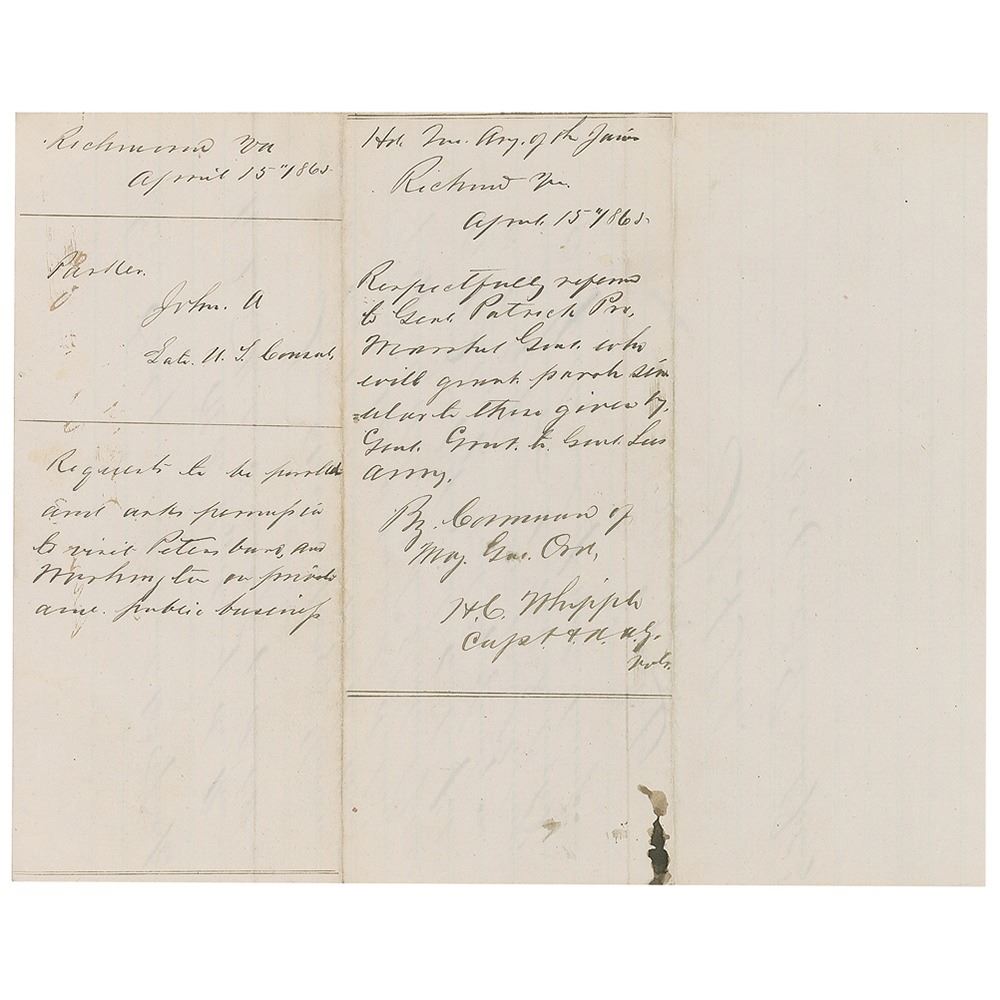 Richmond Va
April 15" 1865
Parker.
John. A
Late. U. S. Consul,
Requests to be paroled
and asks permissio
to visit Petersburg, and
Washington on private
and. public business
Hd. Qrs. Army. of the James
Richmd Va.
April. 15" 1865
Respectfully referred
to Genl Patrick Pro,
Marshal Genl. who
will grant. parole sim
=ular to those given by.
Genl. Grant. to Genl. Lees
army.
By. Command of
Maj. Gen. Ord,
H. C. Whipple
Capt & A. A. G.
Vols.